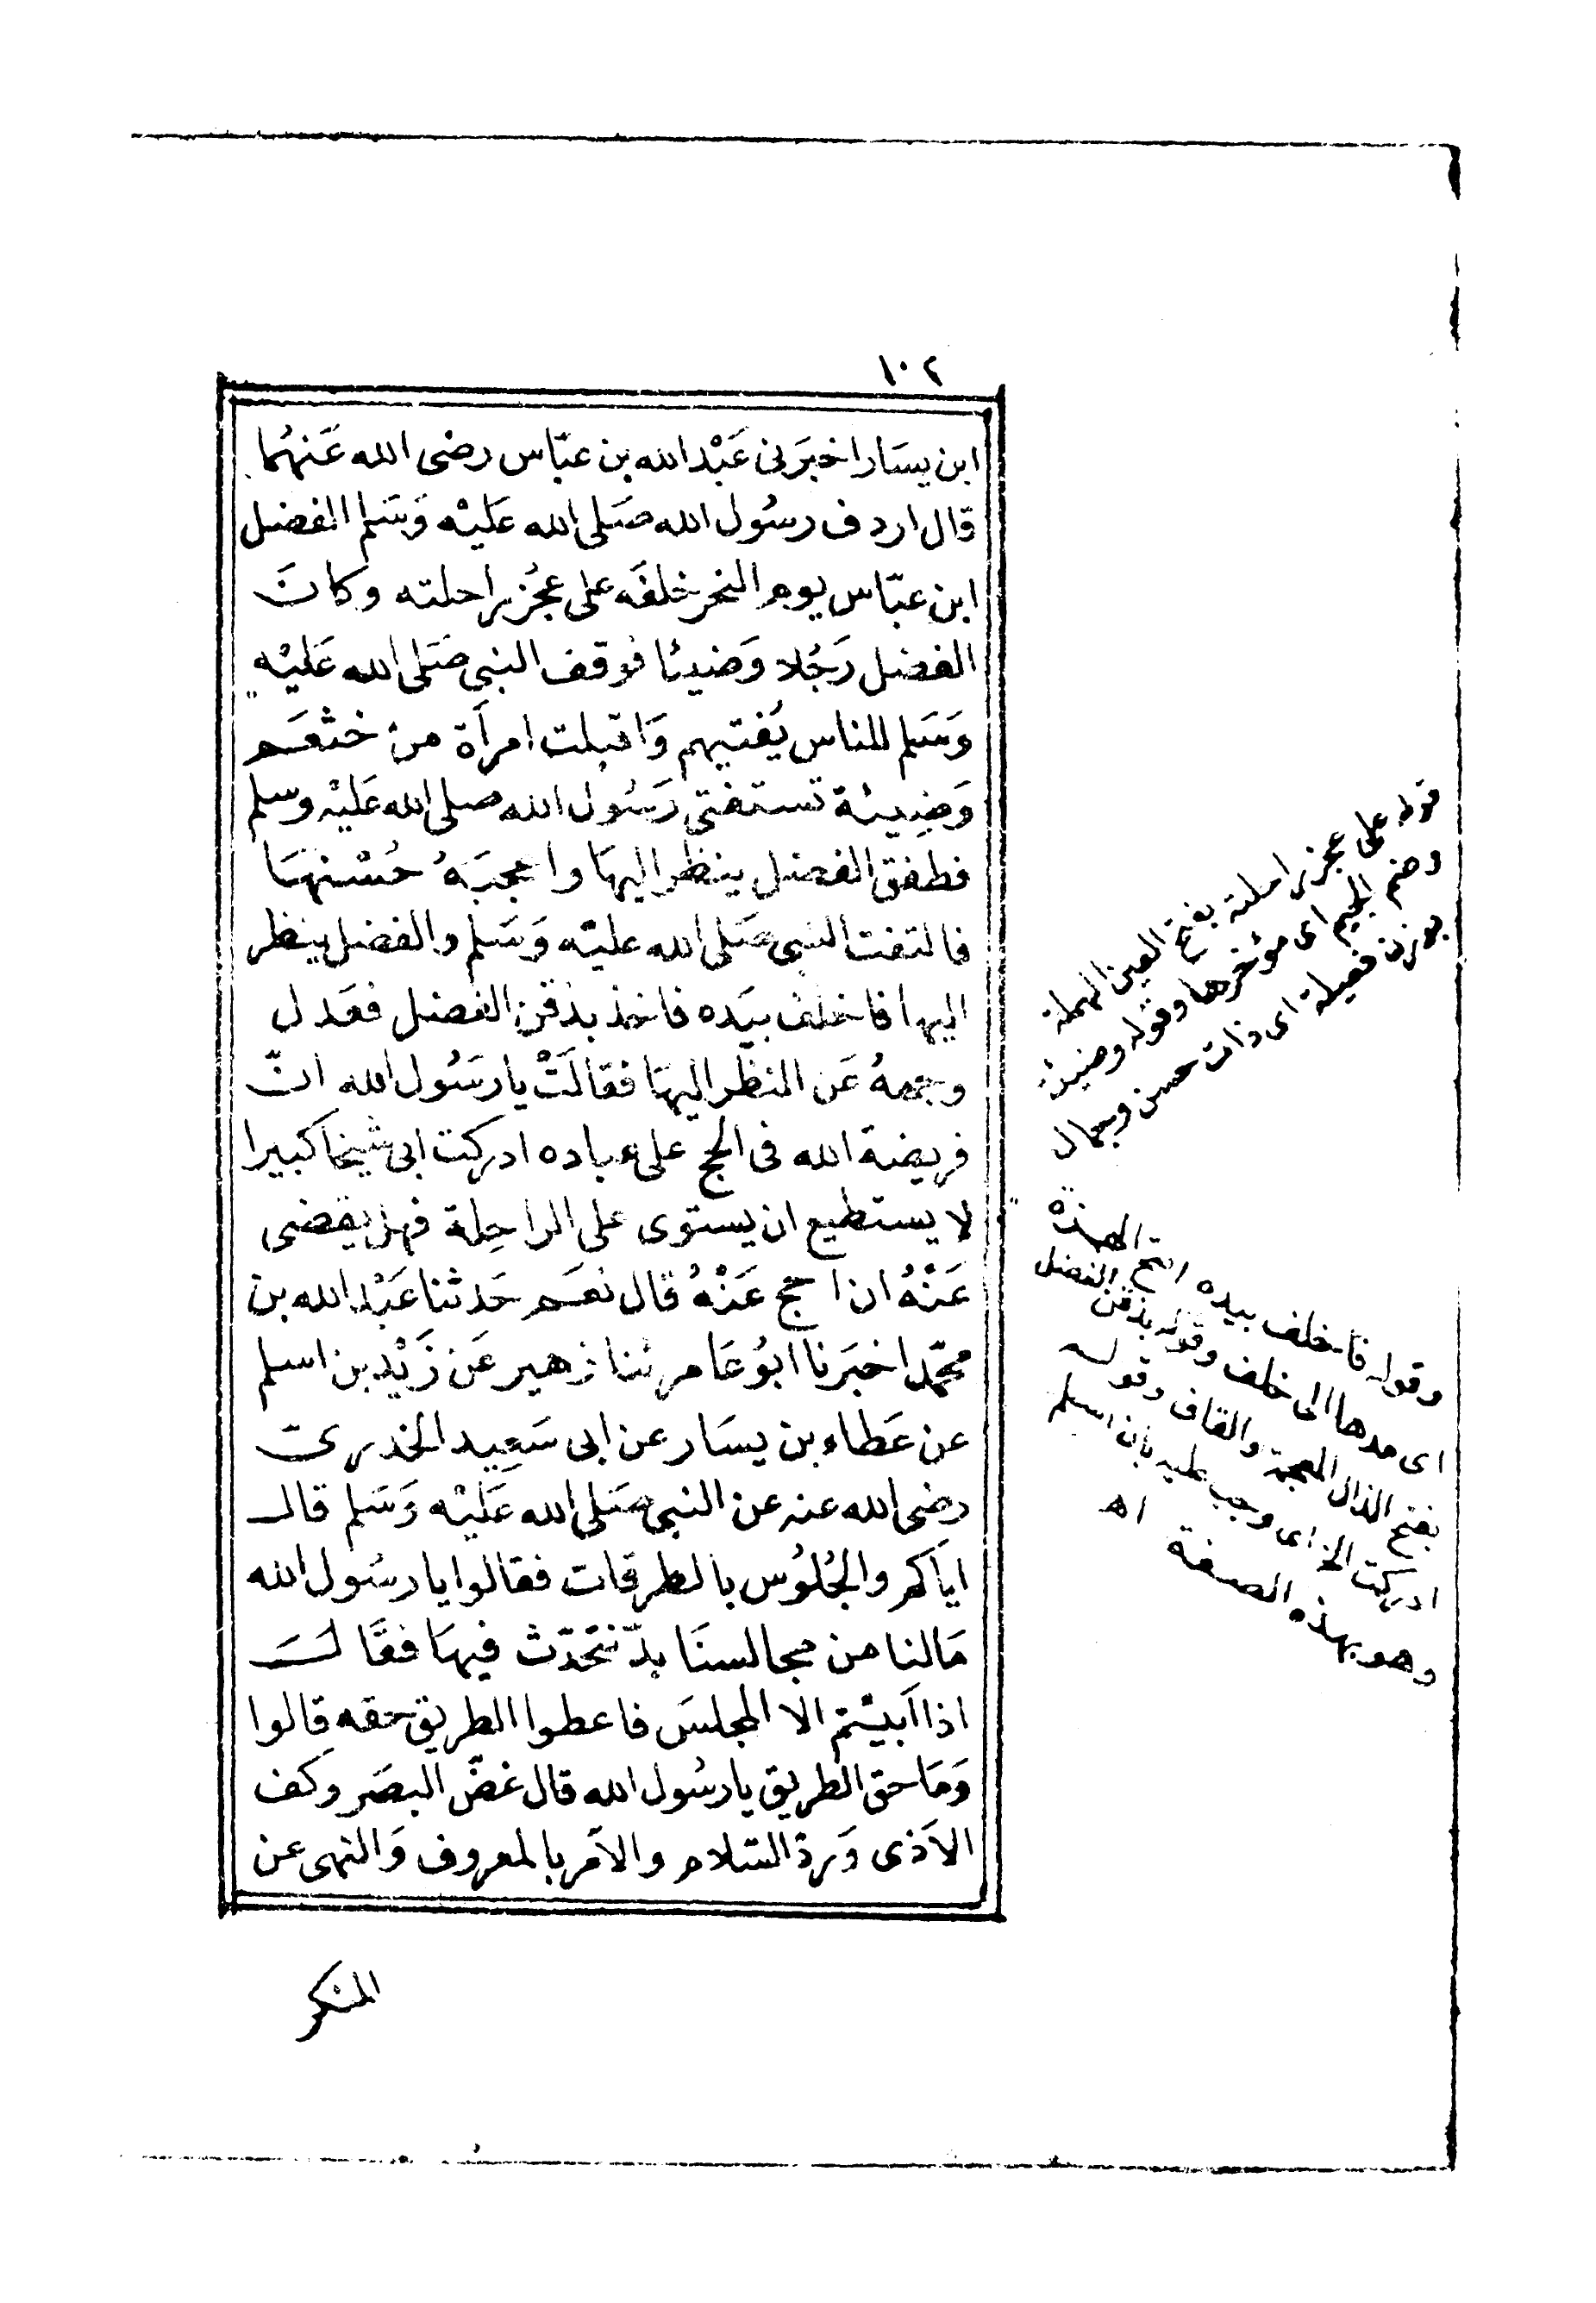 ١٠٢
ابن يسَار اخبَرنى عَبْد الله بن عبّاس رضى الله عَنهُما
قال اردف رسُول الله صَلى الله عَليْه وَسَلم الفضل
ابن عبّاس يوم النحر خلفَه على عجُز راحلته وكانَ
الفضل رَجُلا وَضيئا فوقف النبى صَلى الله عَليْهِ
وَسَلم للناس يُفتيهم وَاقبلت امرأة من خثعَم
وَضِيئة تستفتى رَسُول الله صلى الله عَليْه وسلم
فطفق الفضل ينظر اليهَا واعجبَهُ حُسْنهَا
فالتفت النبى صَلى الله عليْه وَسَلم والفضل ينظر
اليها فاخلف بيَده فاخذ بذقن الفضل فعَدل
وجههُ عَن النظر اليهَا فقالَتْ يا رسَُول الله انّ
فريضة الله فى الحج على عباده ادركت ابى شيخا كبيرا
لا يستطيع ان يستوى على الراحِلة فهل يقضى
عَنْهُ ان احج عَنْهُ قال نعَم حَدثنا عَبْد الله بن
محمّد اخبَرنا ابوُ عَامر ثنا زهير عَن زَيْد بن اسلم
عن عَطاء بن يسَار عن ابى سَعِيد الخدرى
رضى الله عنه عن النبى صَلى الله عَليْه وَسَلم قال
اياكم والجُلوُس بالطرقات فقالوا يا رسُول الله
مَا لنا من مجالسنَا بدّ نتحَدّث فيهَا فقَالَ
اذا اَبيْتم الا المجلسَ فاعطوا الطريق حقه قالوا
وَمَا حق الطريق يا رسُول الله قال غضّ البصَر وكف
الاَذى وَردّ السّلام والاَمر بالمعروف وَالنهى عن
المنكر
قوله على عجز راحلته بفتح العين المهملة
وضم الجيم اى مؤخرها وقوله وضيئة
بوزن فعيلة اى ذات حسن وجمال
وقوله فاخلف بيده بفتح الهمزة
اى مدها الى خلف وقوله بذقن الفضل
بفتح الذال المعجمة والقاف وقوله
ادركت الخ اى وجب عليه بان اسلم
وهو بهذه الصفة اهـ